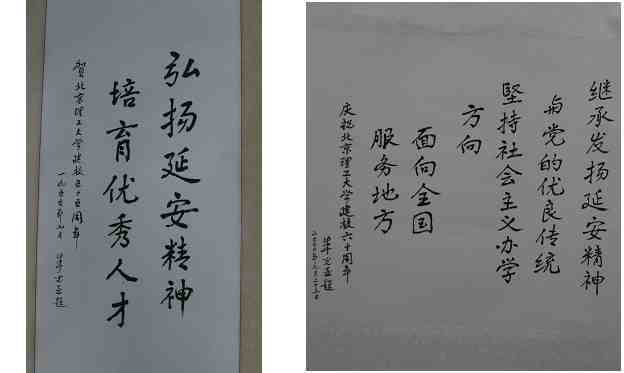 弘扬延安精神
培育优秀人才
贺北京理工大学建校五十五周年
继承发扬延安精神
与党的优良传统
坚持社会主义办学
方向
面向全国
服务地方
庆祝北京理工大学建校六十周年